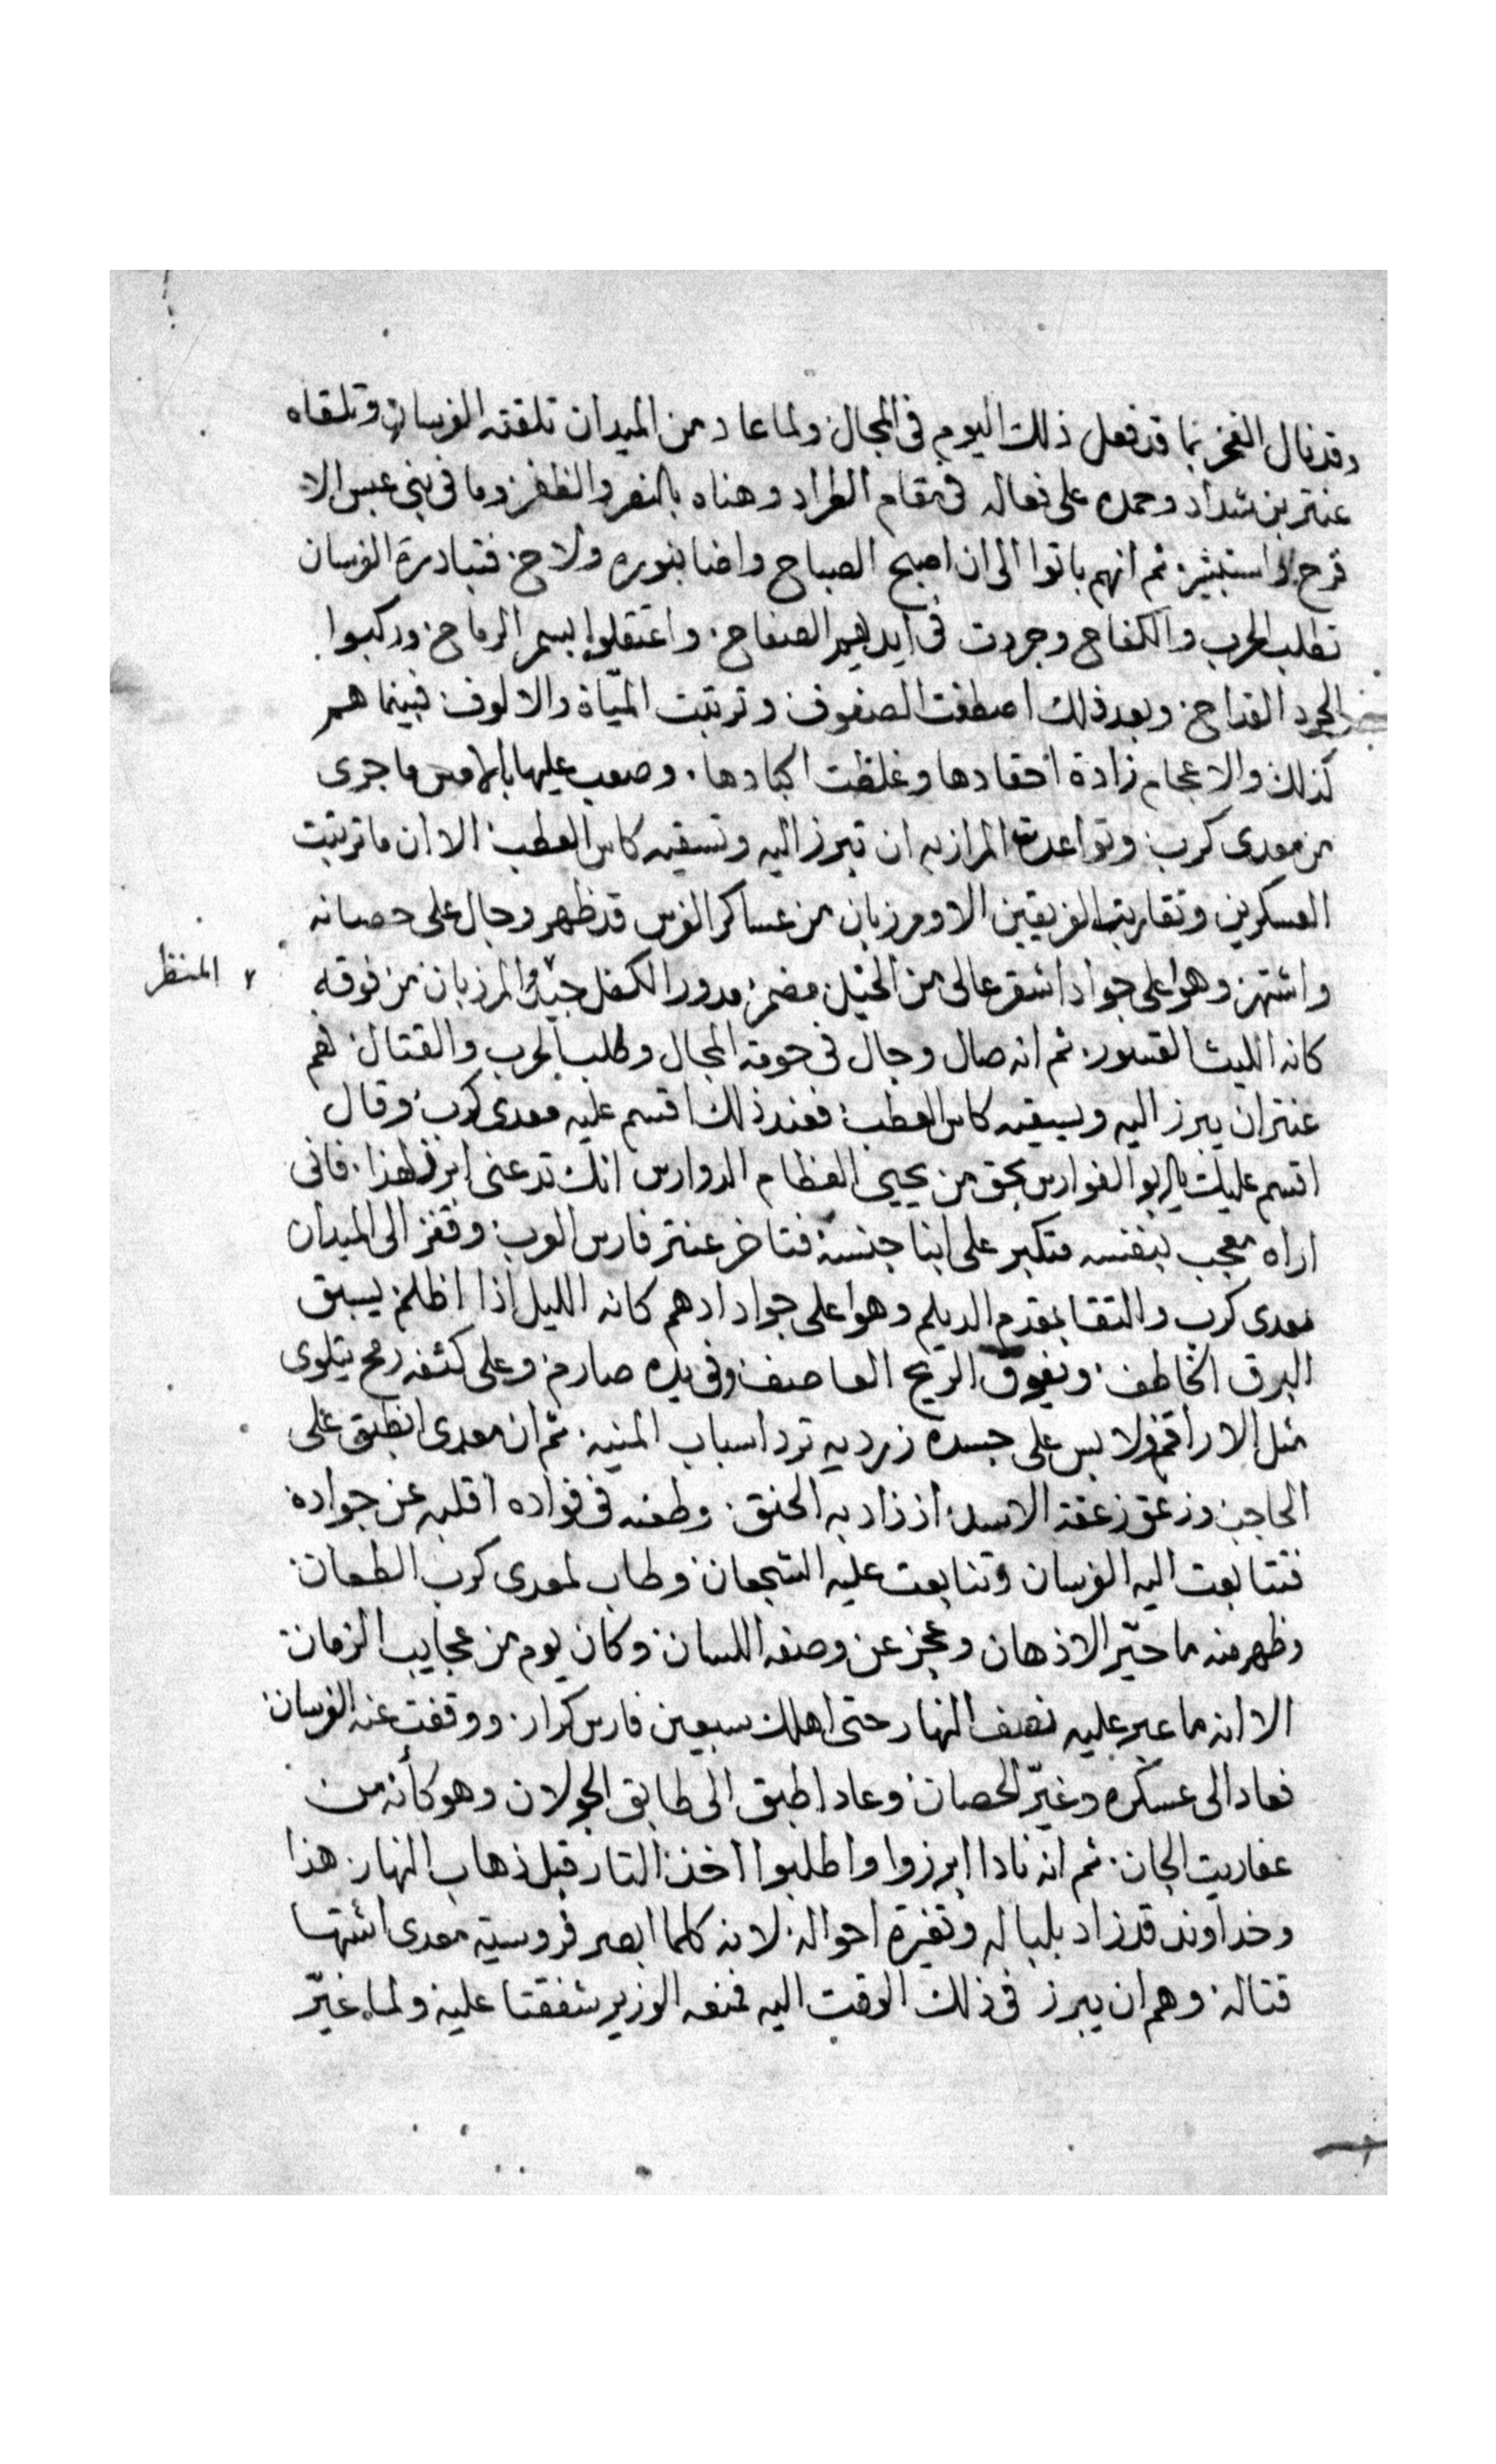 وقد نال الفخر بما قد فعل ذلك اليوم فى المجال ولما عاد من الميدان تلقته الفرسان وتلقاه
عنتر بن شداد وحمده على فعاله فى مقام الطراد وهناه بالنصر والظفر وما فى بنى عبس الا
فرح واستبشر ثم انهم باتوا الى ان اصبح الصباح واضا بنوره ولاح فتبادرة الفرسان
تطلب الحرب والكفاح وجردت فى ايديهم الصفاح واعتقلوا بسمر الرماح وركبوا
الجرد القداح وبعد ذلك اصطفت الصفوف وترتبت المياة والالوف فبينما هم
كذلك والاعجام زادة احقادها وغلظت اكبادها وصعب عليها بالامس ما جرى
من معدى كرب وتواعدت المرازبه ان تبرز اليه وتسقيه كاس العطب الا ان ما ترتبت
العسكرين وتقاربت الفريقين الا ومرزبان من عساكر الفرس قد ظهر وجال على حصانه
واشتهر وهوا على جواد اشقر عالى من الخيل مضمر مدور الكفل جيد والمرزبان من فوقه
المنظر
كانه الليث القسور ثم انه صال وجال فى حومة المجال وطلب الحرب والقتال فهم
عنتر ان يبرز اليه ويسقيه كاس العطب فعند ذلك اقسم عليه معدى كرب وقال
اقسم عليك يا ابو الفوارس بحق من يحيى العظام الدوارس انك تدعنى ابرز لهذا فانى
اراه معجب بنفسه متكبر على ابنا جنسه فتاخر عنتر فارس العرب وقفز الى الميدان
معدى كرب والتقا بمقدم الديلم وهوا على جواد ادهم كانه الليل اذا اظلم يسبق
البرق الخاطف ويفوق الريح العاصف وفى يده صارم وعلى كتفه رمح يتلوى
مثل الاراقم ولابس على جسده زرديه ترد اسباب المنيه ثم ان معدى انطبق على
الحاجب وزعق زعقة الاسد اذ زاد به الحنق وطعنه فى فواده اقلبه عن جواده
فتتابعت اليه الفرسان وتتابعت عليه الشجعان وطاب لمعدى كرب الطعان
وظهر منه ما حيّر الاذهان وعجز عن وصفه اللسان وكان يوم من عجايب الزمان
الا انه ما عبر عليه نصف النهار حتى اهلك سبعين فارس كرار ووقفت عنه الفرسان
فعاد الى عسكره وغيّر الحصان وعاد اطبق الى طابق الجولان وهو كأنه من
عفاريت الجان ثم انه نادا ابرزوا واطلبوا اخذ التار قبل ذهاب النهار هذا
وخداوند قد زاد بلباله وتغيرة احواله لانه كلما ابصر فروسية معدى اشتها
قتاله وهم ان يبرز فى ذلك الوقت اليه فمنعه الوزير شفقتا عليه ولما غيّر